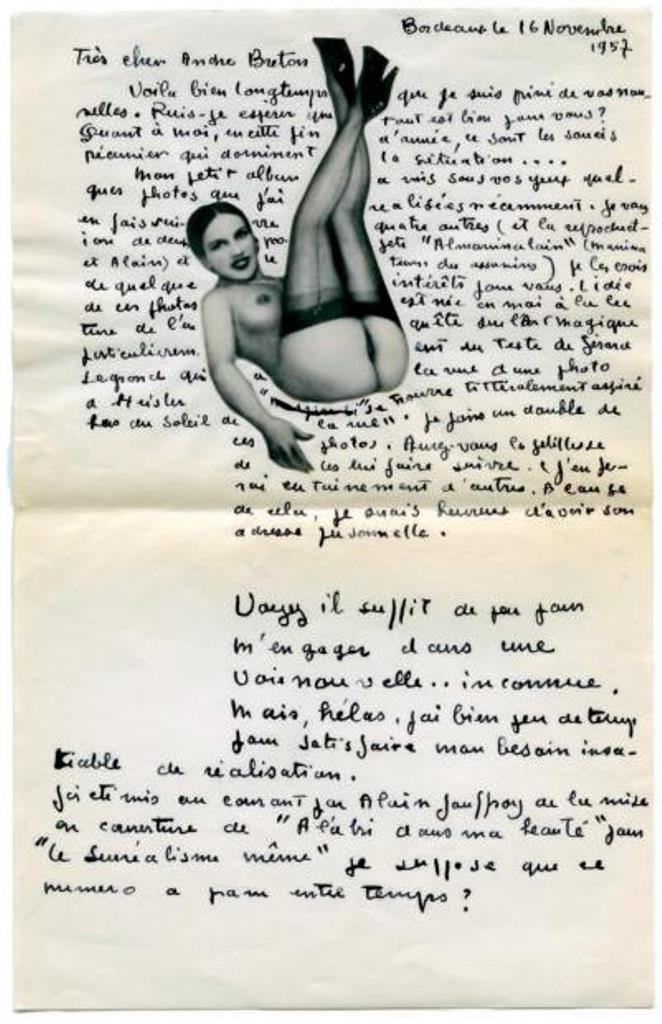 Bordeaux le 16 Novembre
1957
Très cher André Breton
Voila bien longtemps que je suis privé de vos nou-
velles. Puis-je espérer que tout est bien pour vous?
Quant à moi, en cette fin d'année, ce sont les soucis
pécunier qui dominent la situation....
Mon petit album a mis sous vos yeux quel-
ques photos que j'ai realisées récemment. Je vous
en fais suivre quatre autres (et la reproduct-
ion de deux projets "
et Alain) je les crois
de quelque intérêts pour vous. L'idée
de ces photos est née en mai à la lec
ture de l'enquête sur l'Art magique
particulièrem ent du texte de Gérard
Legrand qui a la vue d'une photo
à Heisler "se trouve littéralement aspiré
hors du soleil de la rue". je joins un double de
ces photos. Auriez-vous la
de les lui faire suivre. (j'en fe-
rai certainement d'autres. A cause
de cela, je serais heureux d'avoir son
adresse personnelle.
Voyez il suffit de peu pour
m'engager dans une
voie nouvelle.. inconnue.
Mais, hélas, j'ai bien peu de temp
pour satisfaire mon besoin insa-
tiable de réalisation.
J'ai eté mis au courant par Alain Jouffroy de la mise
en couverture de "A l'abri dans ma beauté" pour
"le Surréalisme même" je suppose que ce
numero a paru entre temps?